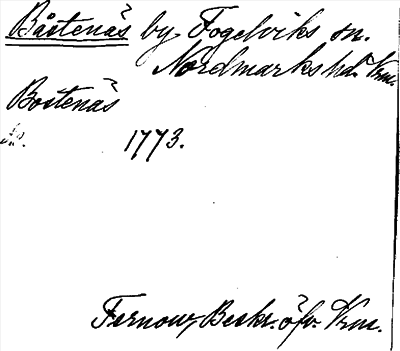 Båstenäs by Fogelviks sn.
Nordmarks hd. Vrm.
Bostenäs
1773.
Fernow, Beskr. öfv. Vrm.